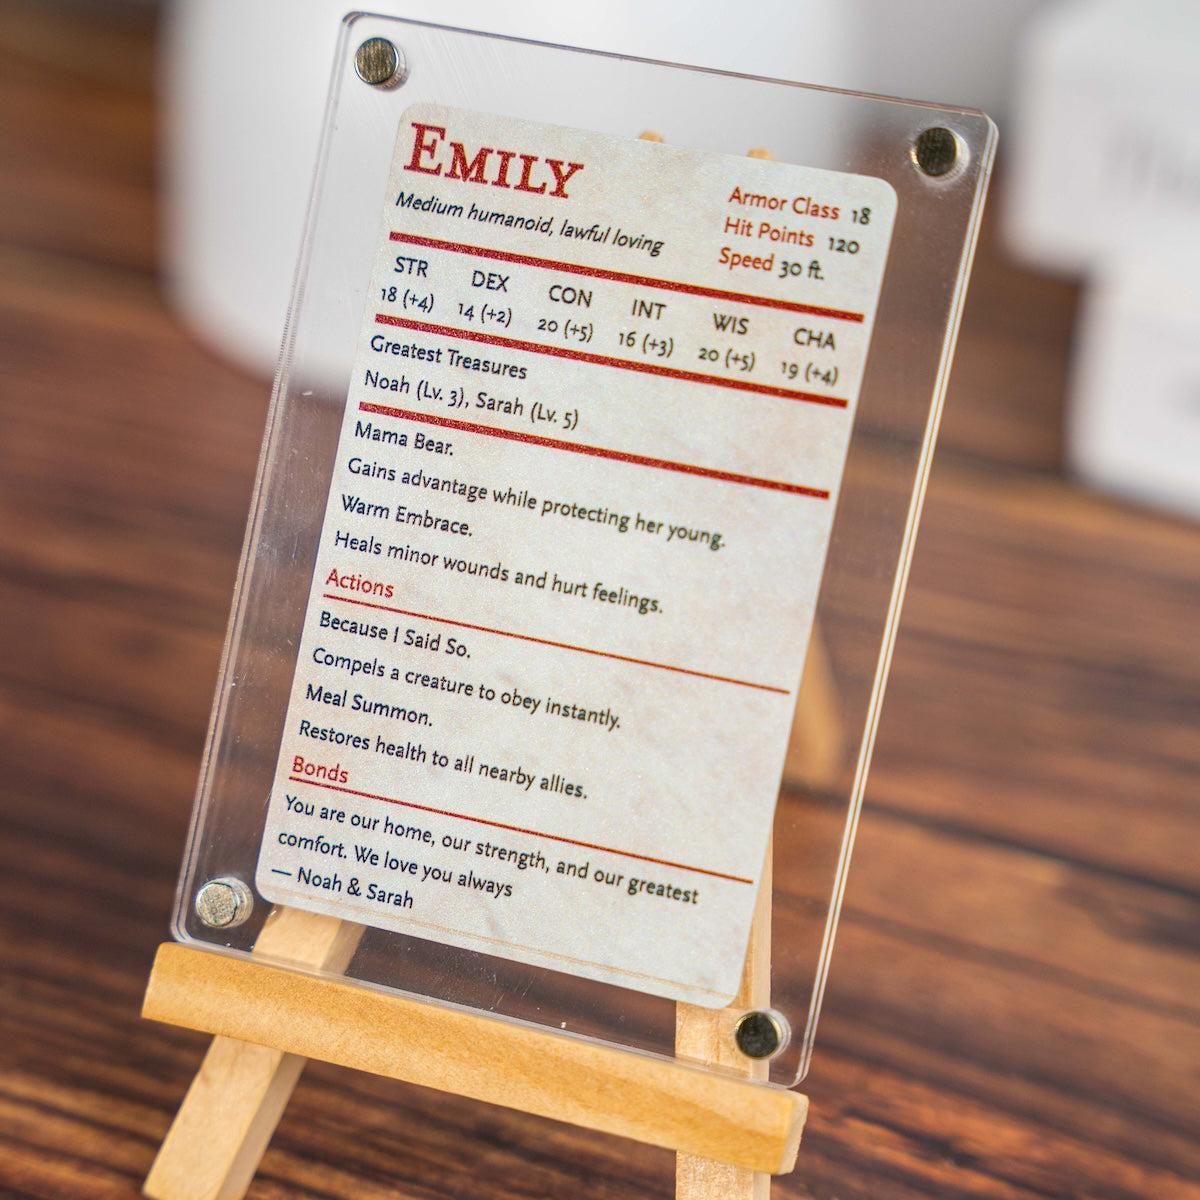 EMILY
Medium humanoid, lawful loving
Armor Class 18
Hit Points 120
Speed 30 ft.
STR DEX CON INT WIS CHA
18 (+4) 14 (+2) 20 (+5) 16 (+3) 20 (+5) 19 (+4)
Greatest Treasures
Noah (Lv. 3), Sarah (Lv. 5)
Mama Bear.
Gains advantage while protecting her young.
Warm Embrace.
Heals minor wounds and hurt feelings.
Actions
Because I Said So.
Compels a creature to obey instantly.
Meal Summon.
Restores health to all nearby allies.
Bonds
You are our home, our strength, and our greatest
comfort. We love you always
— Noah & Sarah